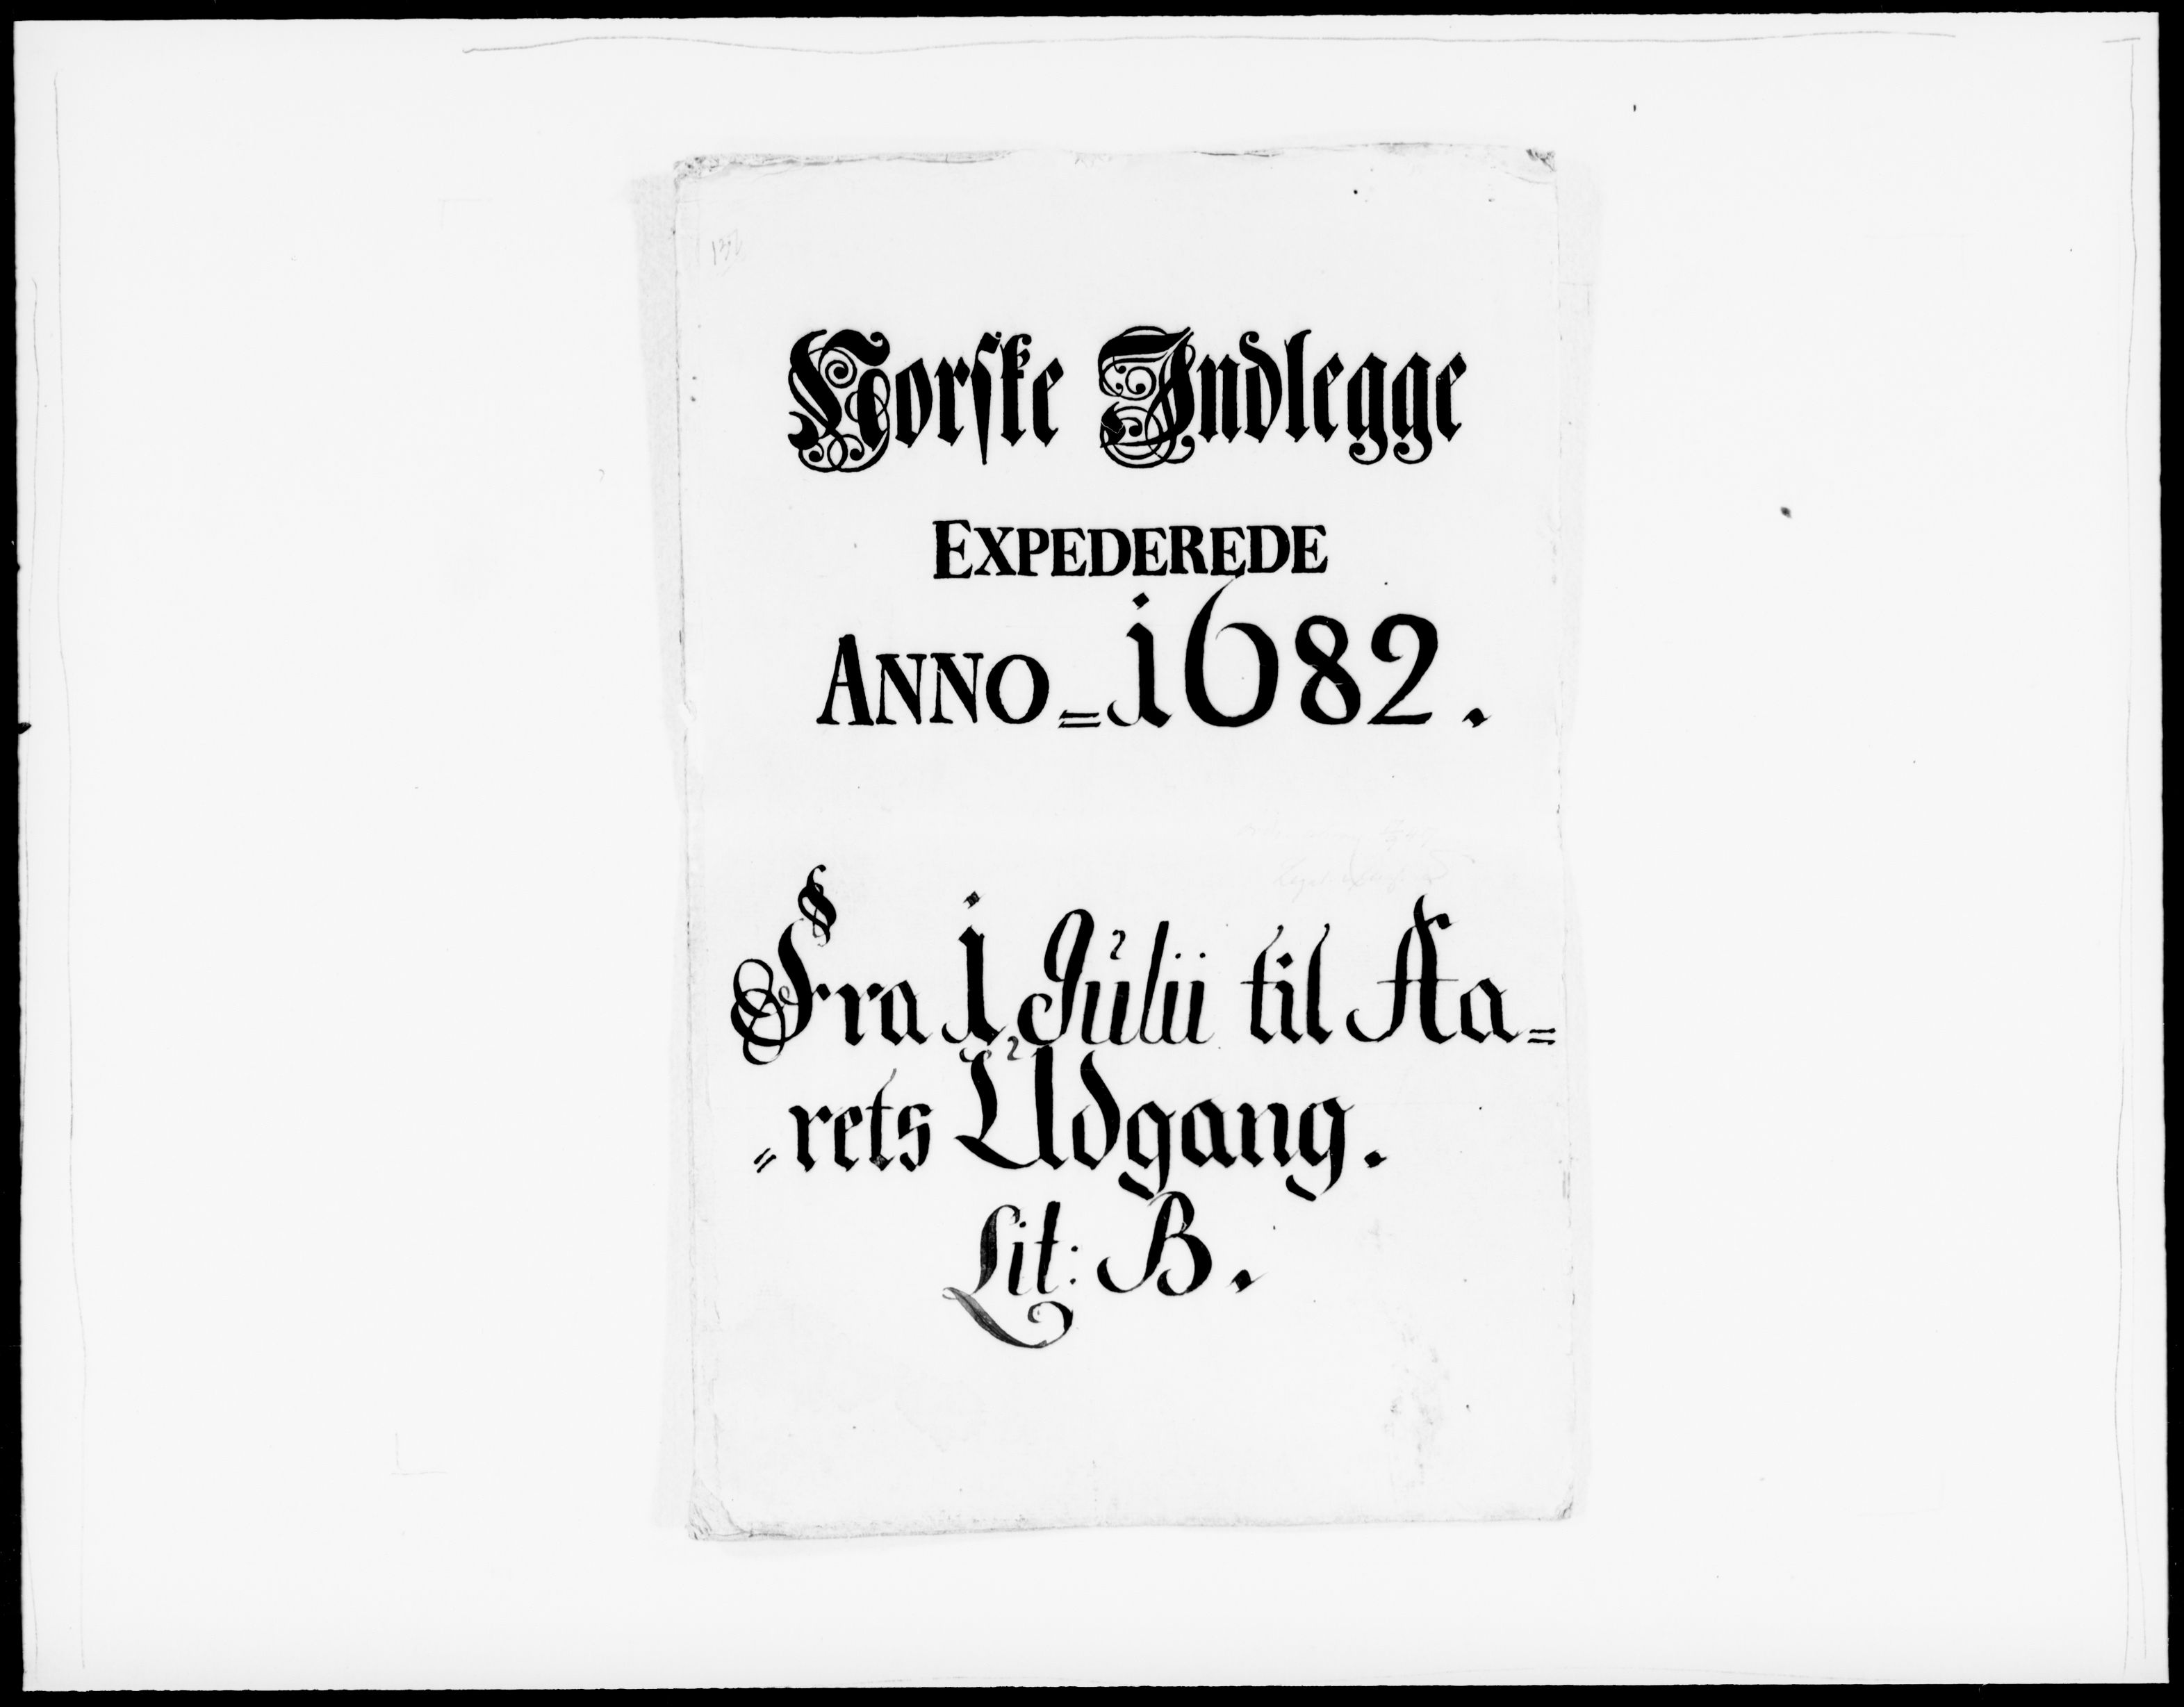 Norske Indlegge
EXPEDEREDE
ANNO=1682.
Fra 1 Julii til Aa=
=rets Udgang.
Lit: B.